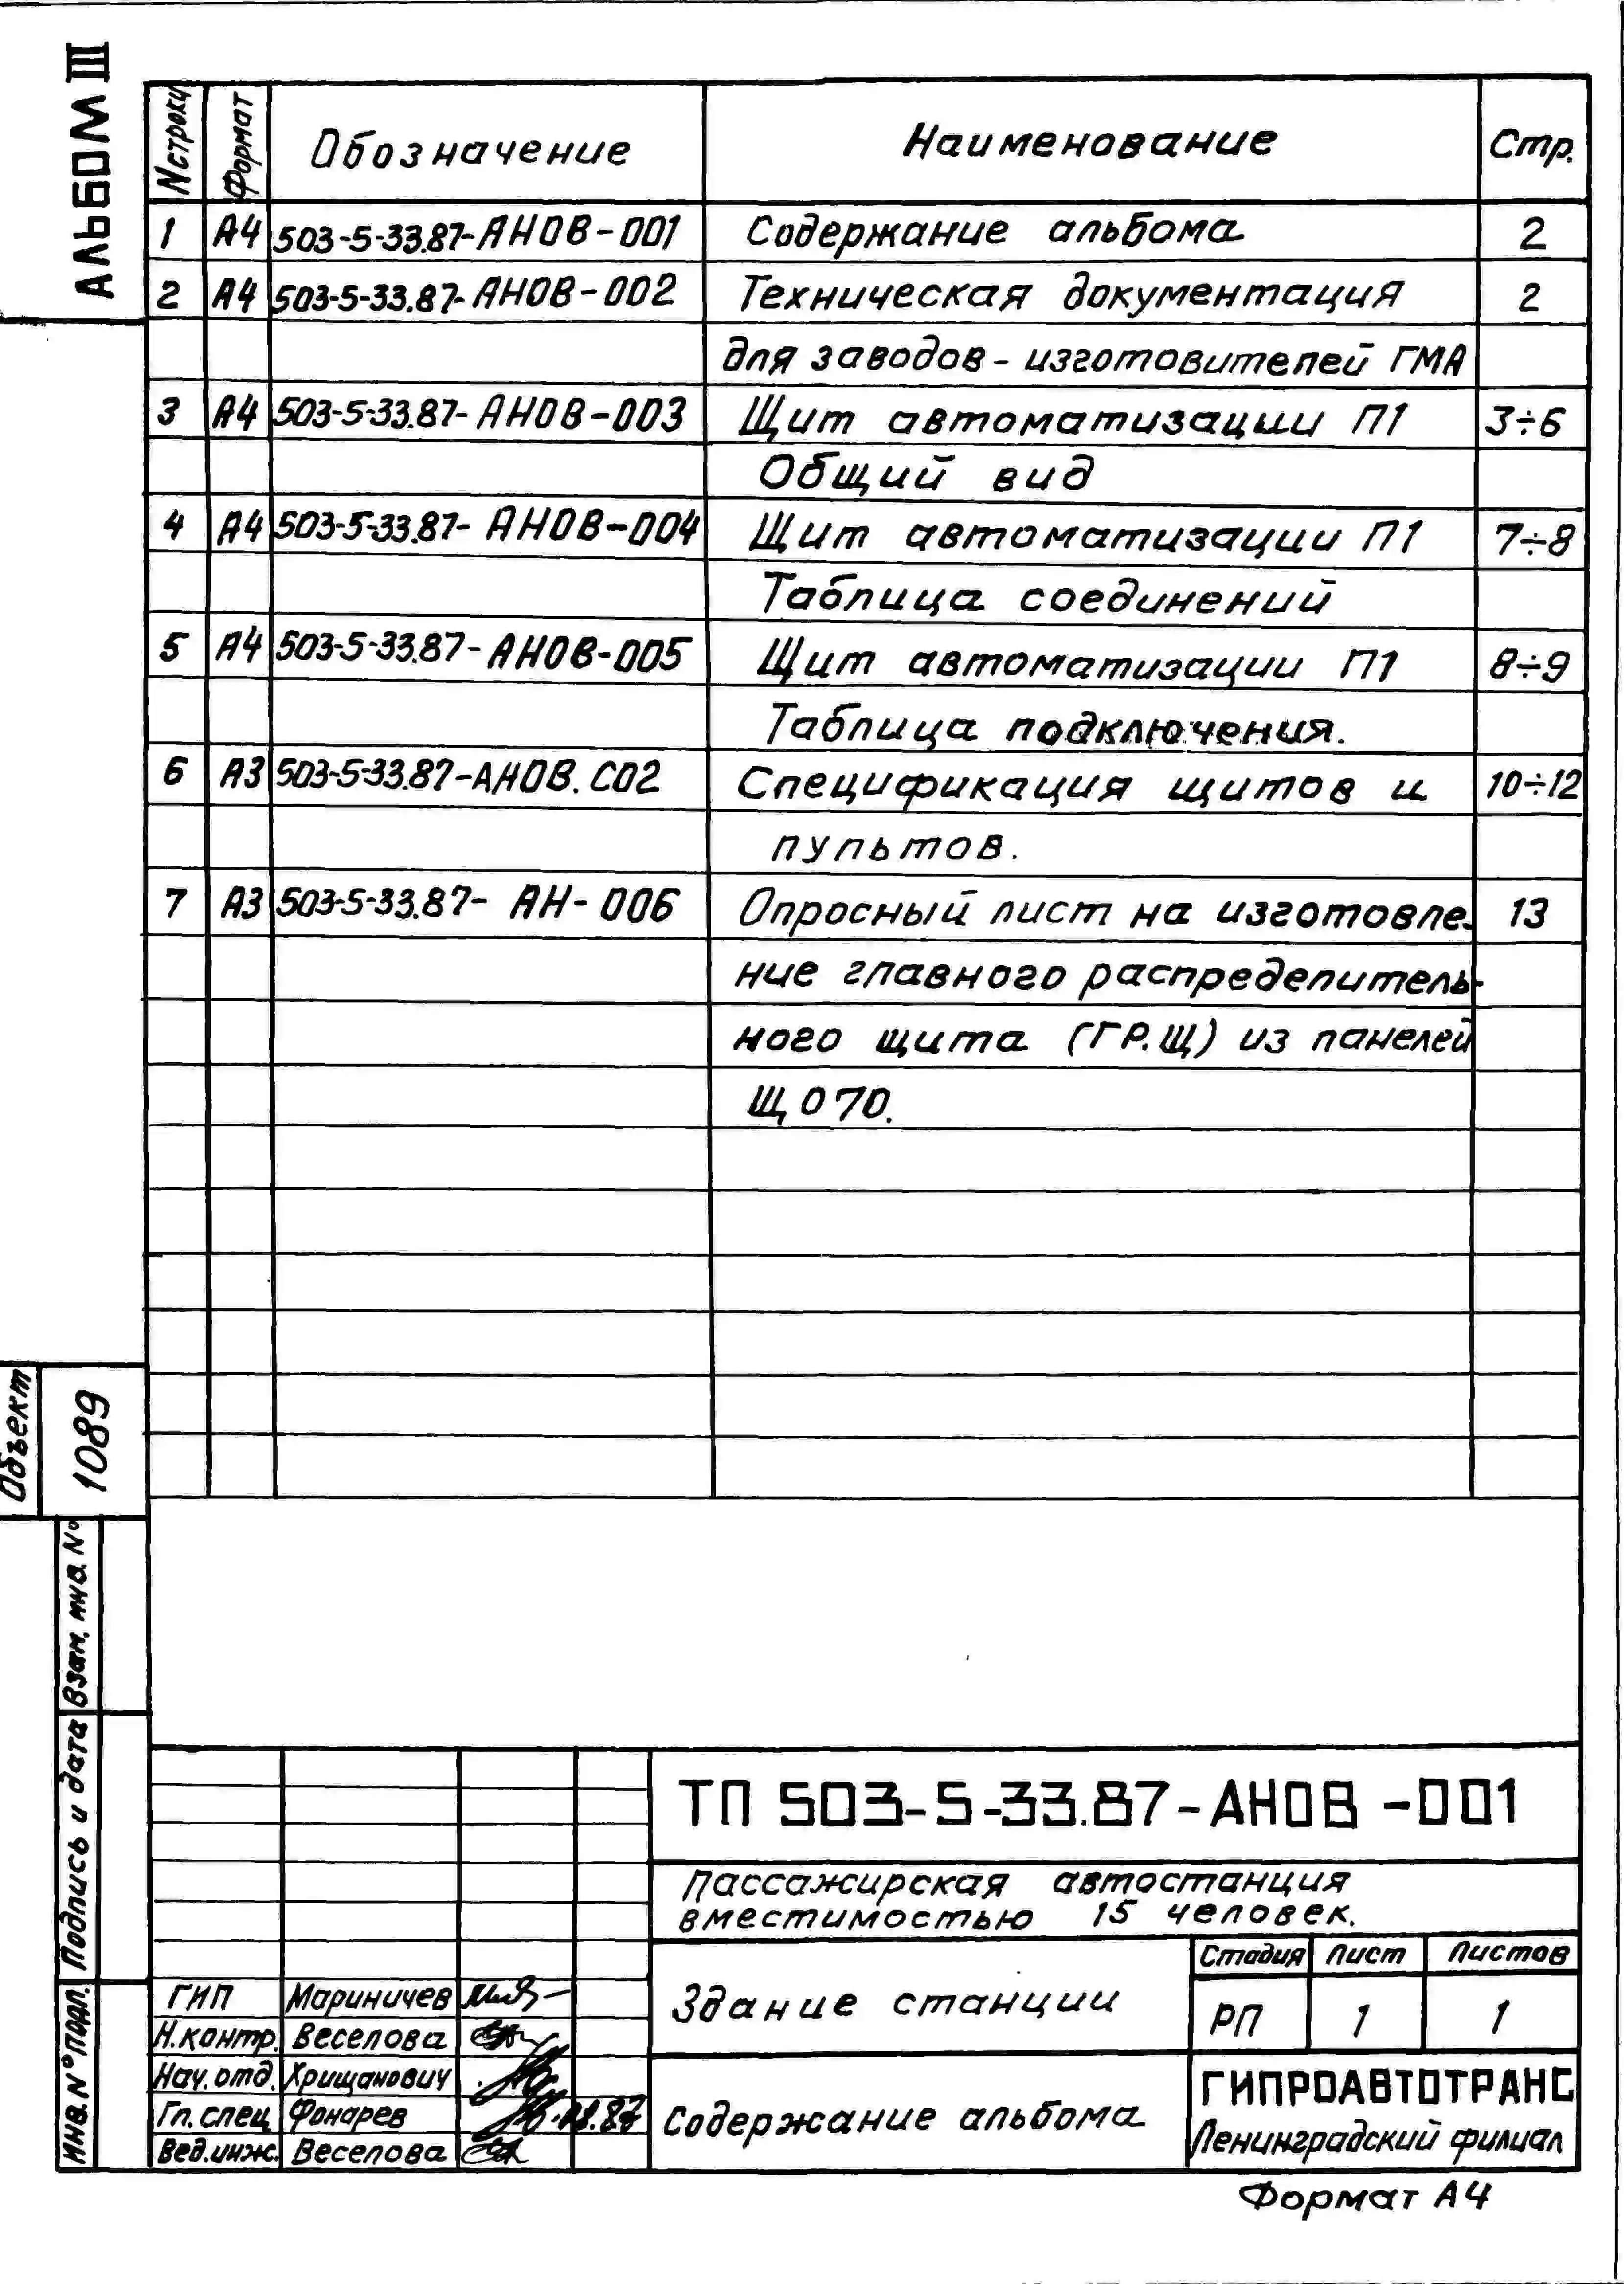 АЛЬБОМ III
№строки Формат Обозначение Наименование Стр.
1 А4 503-5-33.87-АНОВ-001 Содержание альбома 2
2 А4 503-5-33.87-АНОВ-002 Техническая документация 2
для заводов-изготовителей ГМА
3 А4 503-5-33.87-АНОВ-003 Щит автоматизации П1 3÷6
Общий вид
4 А4 503-5-33.87-АНОВ-004 Щит автоматизации П1 7÷8
Таблица соединений
5 А4 503-5-33.87-АНОВ-005 Щит автоматизации П1 8÷9
Таблица подключения.
6 А3 503-5-33.87-АНОВ.СО2 Спецификация щитов и 10÷12
пультов.
7 А3 503-5-33.87-АН-006 Опросный лист на изготовле- 13
ние главного распределитель-
ного щита (ГР.Щ) из панелей
ЩО70.
Объект 1089
Взам. инв. №
Подпись и дата
ИНВ.№ПОДЛ.
ТП 503-5-33.87-АНОВ-001
Пассажирская автостанция
вместимостью 15 человек.
Здание станции
Стадия Лист Листов
РП 1 1
ГИП Мариничев
Н.контр. Веселова
Нач.отд. Хрищанович
Гл.спец Фонарев
Вед.инж. Веселова
Содержание альбома
ГИПРОАВТОТРАНС
Ленинградский филиал
Формат А4